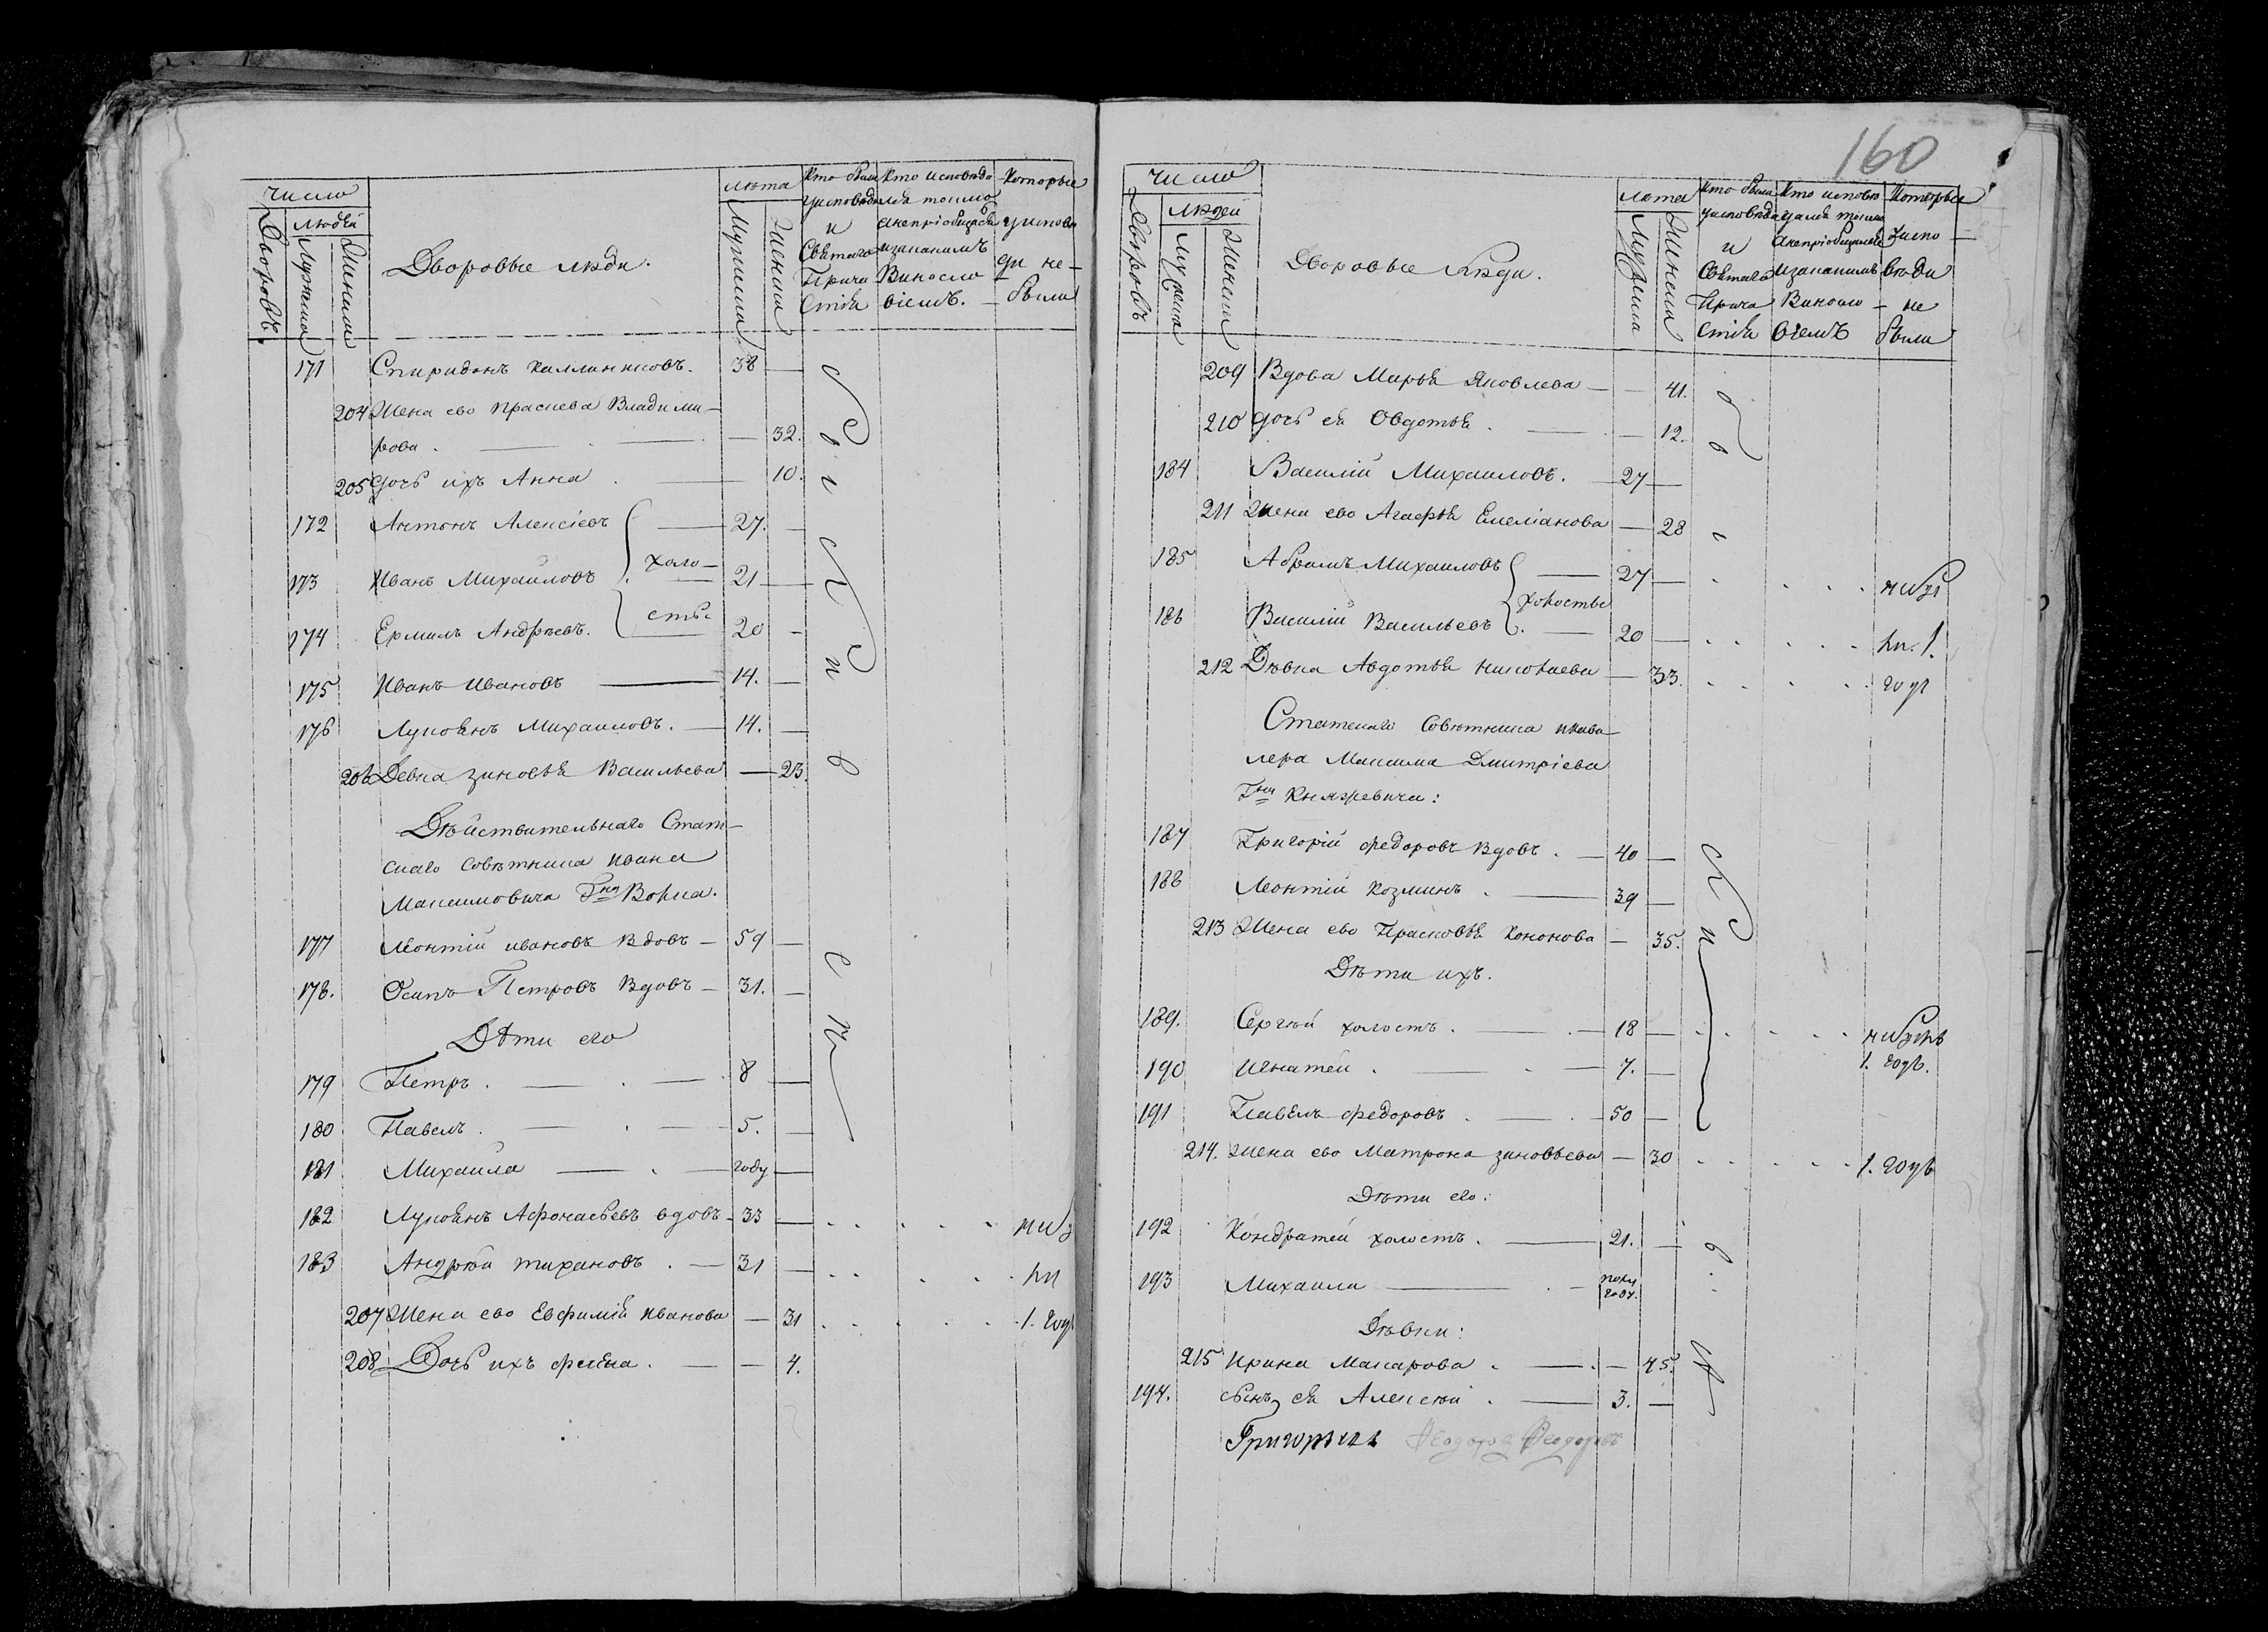 число
Дворовъ
людей
Мужеска
Женска
Дворовые люди.
лѣта
Мужеска
Женска
Кто были
у исповѣди
и
Святаго
Прича
стія
Кто исповѣдо
лся токмо
анепріобщался
изакакимъ
Виносло
віемъ.
Которые
у исповѣ
ди не
были
171 Спиридонъ Каллиниковъ. 38
204 Жена ево праскева Владими
рова. 32.
205 дочь ихъ Анна 10.
172 Антонъ Алексіевъ 27.
холо
173 Иванъ Михайловъ 21
сты.
174 Ермилъ Андрѣевъ. 20
175 Иванъ Ивановъ 14.
176 Лукоянъ Михаиловъ. 14.
206 Девка зиновья Васильева 23
Дѣйствительнаго Стат
скаго Совѣтника Ивана
Максимовича Гна Ворка.
177 Леонтій ивановъ вдовъ 59
178. Осипъ Петровъ Вдовъ 31.
Дѣти его
179 Петръ. 8
180 Павелъ. 5.
181 Михаила году
182 Лукоянъ Афонасьевъ вдовъ 33
183 Андрѣй тихановъ. 31
207 Жена ево Евфимія Иванова 31 1. году
208 Дочь ихъ фекла. 4.
160
число
Дворовъ
Людей
Мужеска
Женска
Дворовые Люди.
Лѣта
Мужеска
Женска
Кто были
у исповѣди
и
Святаго
Прича
стія
Кто исповѣ
дался токмо
анепріобщался
изакакимъ
Виносло
віемъ
Которые
у испо
вѣди
не
были
209 Вдова Марья Яковлева 41.
210 дочь ея Овдотья. 12.
184 Василій Михаиловъ. 27
211 Жена ево Агафья Емеліанова 28
185 Абрамъ Михаиловъ 27
холосты
186 Василій Васильевъ. 20
212 Дѣвка Авдотья николаева 33. году
Статскаго Совѣтника икава
лера Максима Дмитріева
Гна Княжевича:
187 Григорій федоровъ Вдовъ. 40
188 Леонтій Козминъ. 39
213 Жена ево Прасковья Кононова 35.
Дѣти ихъ.
189. Сергѣй холостъ. 18
190 Игнатей. 7. 1. годъ.
191 Павелъ федоровъ. 50
214. Жена ево Матрона зиновьева 30 1. годъ
Дѣти его:
192 Кондратей холостъ. 21.
193 Михаила полу
году.
Дѣвки:
215 Ирина Макарова. 45.
194. сынъ ея Алексѣй. 3.